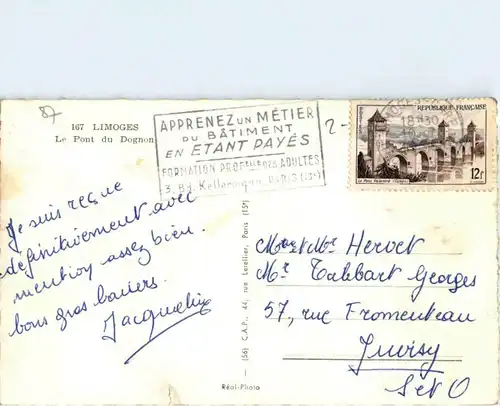 87
167 LIMOGES
Le Pont du Dognon
APPRENEZ UN MÉTIER
DU BÂTIMENT
EN ETANT PAYÉS
FORMATION PROFlle DES ADULTES
3, Bd. Kellermann, PARIS (13e)
2-
18H30
RÉPUBLIQUE FRANÇAISE
12F
Je suis reçue
définitivement avec
mention assez bien.
bons gros baisers.
Jacqueline
Mme et Mr Hervet
Mr Talibart Georges
57, rue Fromenteau
Juvisy
S et O
(56) C.A.P., 44, rue Letellier, Paris (15e)
Réal-Photo